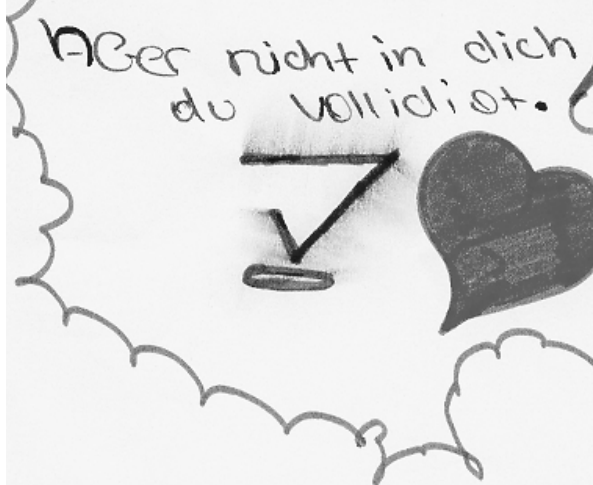 Aber nicht in dich
du vollidiot.